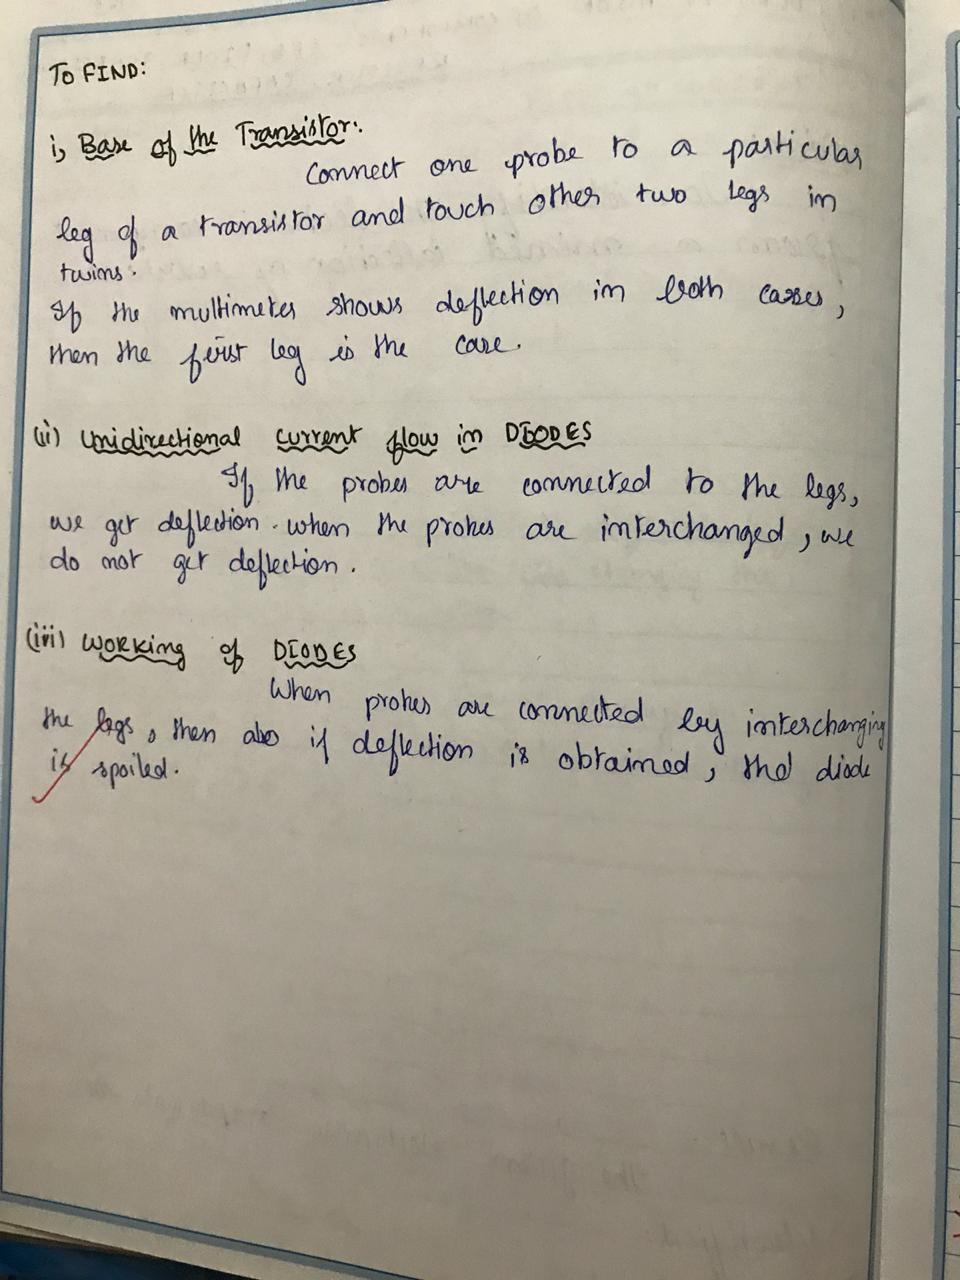 TO FIND:
i, Base of the Transistor:
Connect one probe to a particular
leg of a transistor and touch other two legs in
twins.
If the multimeter shows deflection in both cases,
then the first leg is the case.
(ii) Unidirectional current flow in DIODES
If the probes are connected to the legs,
we get deflection. when the probes are interchanged, we
do not get deflection.
(iii) WORKING of DIODES
When probes are connected by interchanging
the legs, then also if deflection is obtained, the diode
is spoiled.